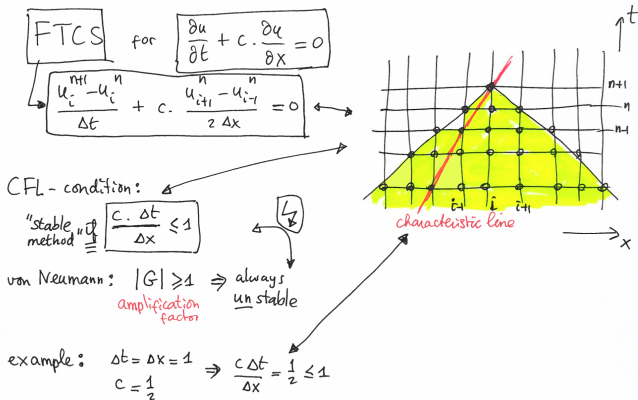 FTCS for ∂u/∂t + c. ∂u/∂x = 0
(u_i^{n+1} - u_i^n)/Δt + c. (u_{i+1}^n - u_{i-1}^n)/(2 Δx) = 0
CFL - condition:
"stable method" if (c. Δt)/Δx ≤ 1
von Neumann: |G| ≥ 1 ⇒ always
unstable
amplification
factor
example: Δt = Δx = 1 ⇒ (c Δt)/Δx = 1/2 ≤ 1
c = 1/2
t
n+1
n
n-1
i-1 i i+1
characteristic line
x